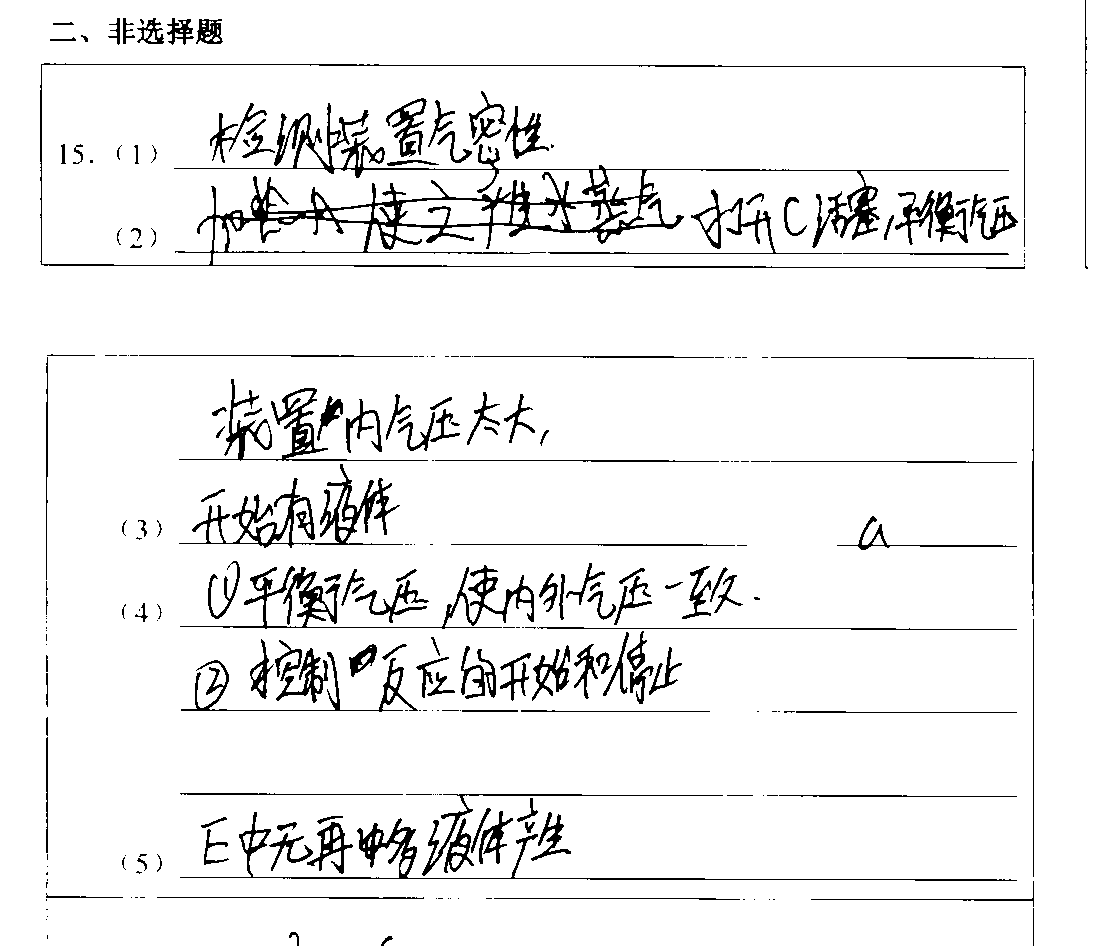 二、非选择题
15.（1）检测装置气密性.
（2）打开C活塞,平衡气压
装置内气压太大,
（3）开始有液体 a
（4）①平衡气压,使内外气压一致.
②控制反应的开始和停止
（5）E中无再液体产生